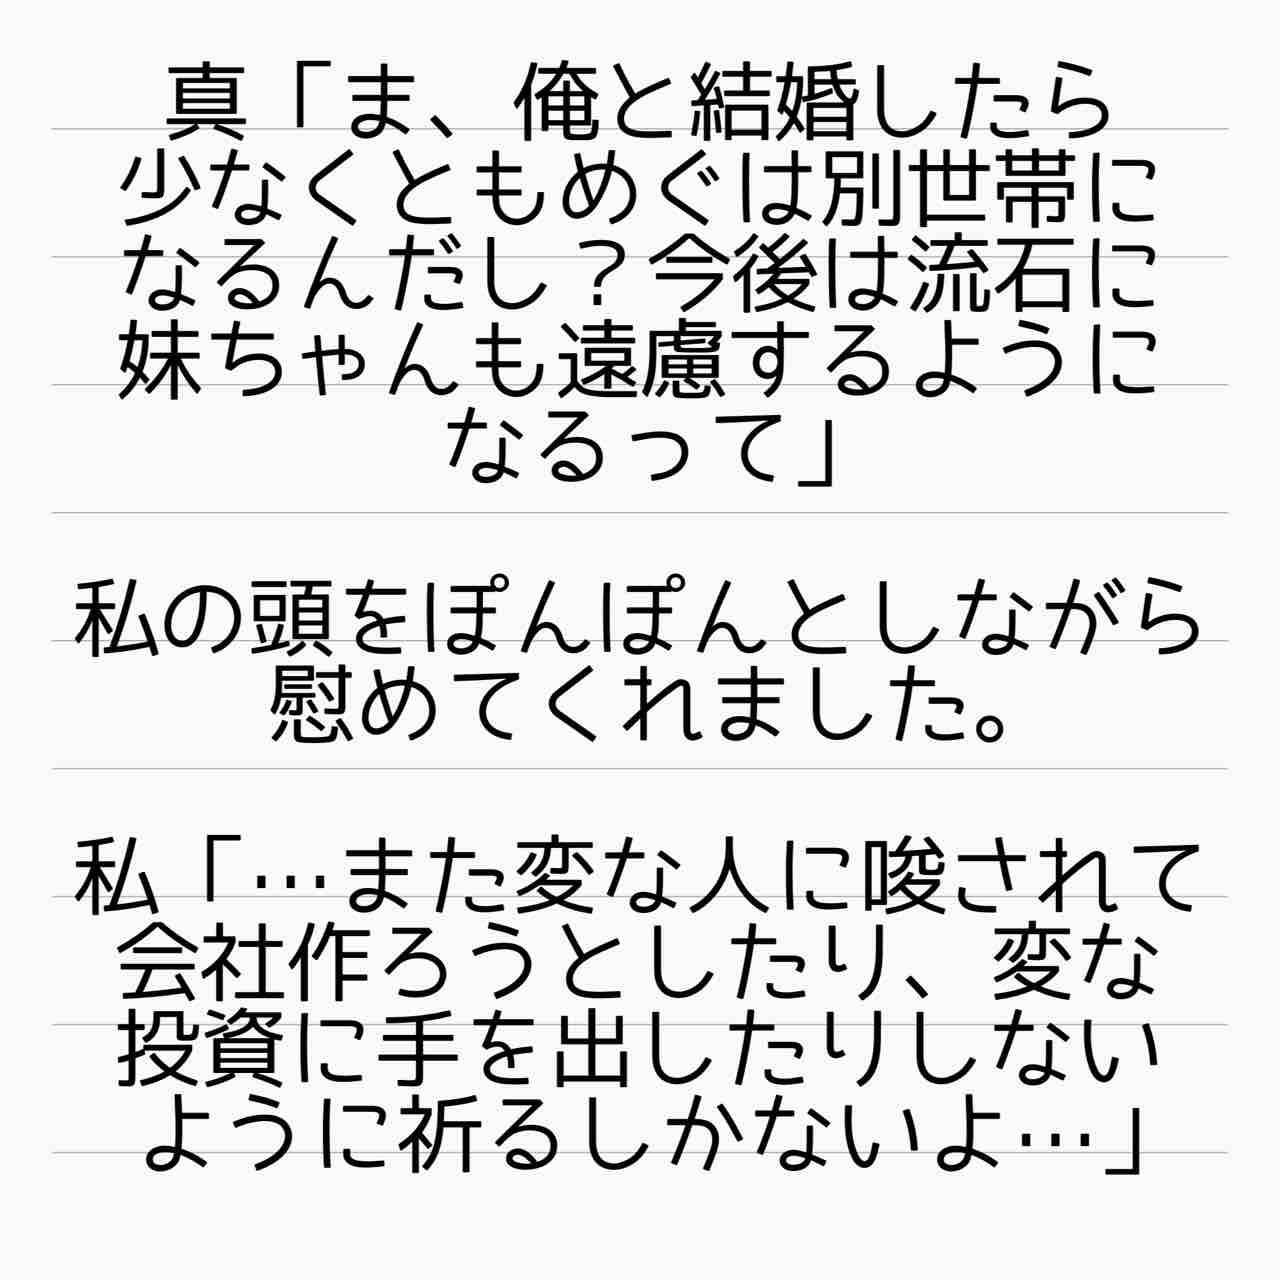 真「ま、俺と結婚したら
少なくともめぐは別世帯に
なるんだし？今後は流石に
妹ちゃんも遠慮するように
なるって」
私の頭をぽんぽんとしながら
慰めてくれました。
私「…また変な人に唆されて
会社作ろうとしたり、変な
投資に手を出したりしない
ように祈るしかないよ…」